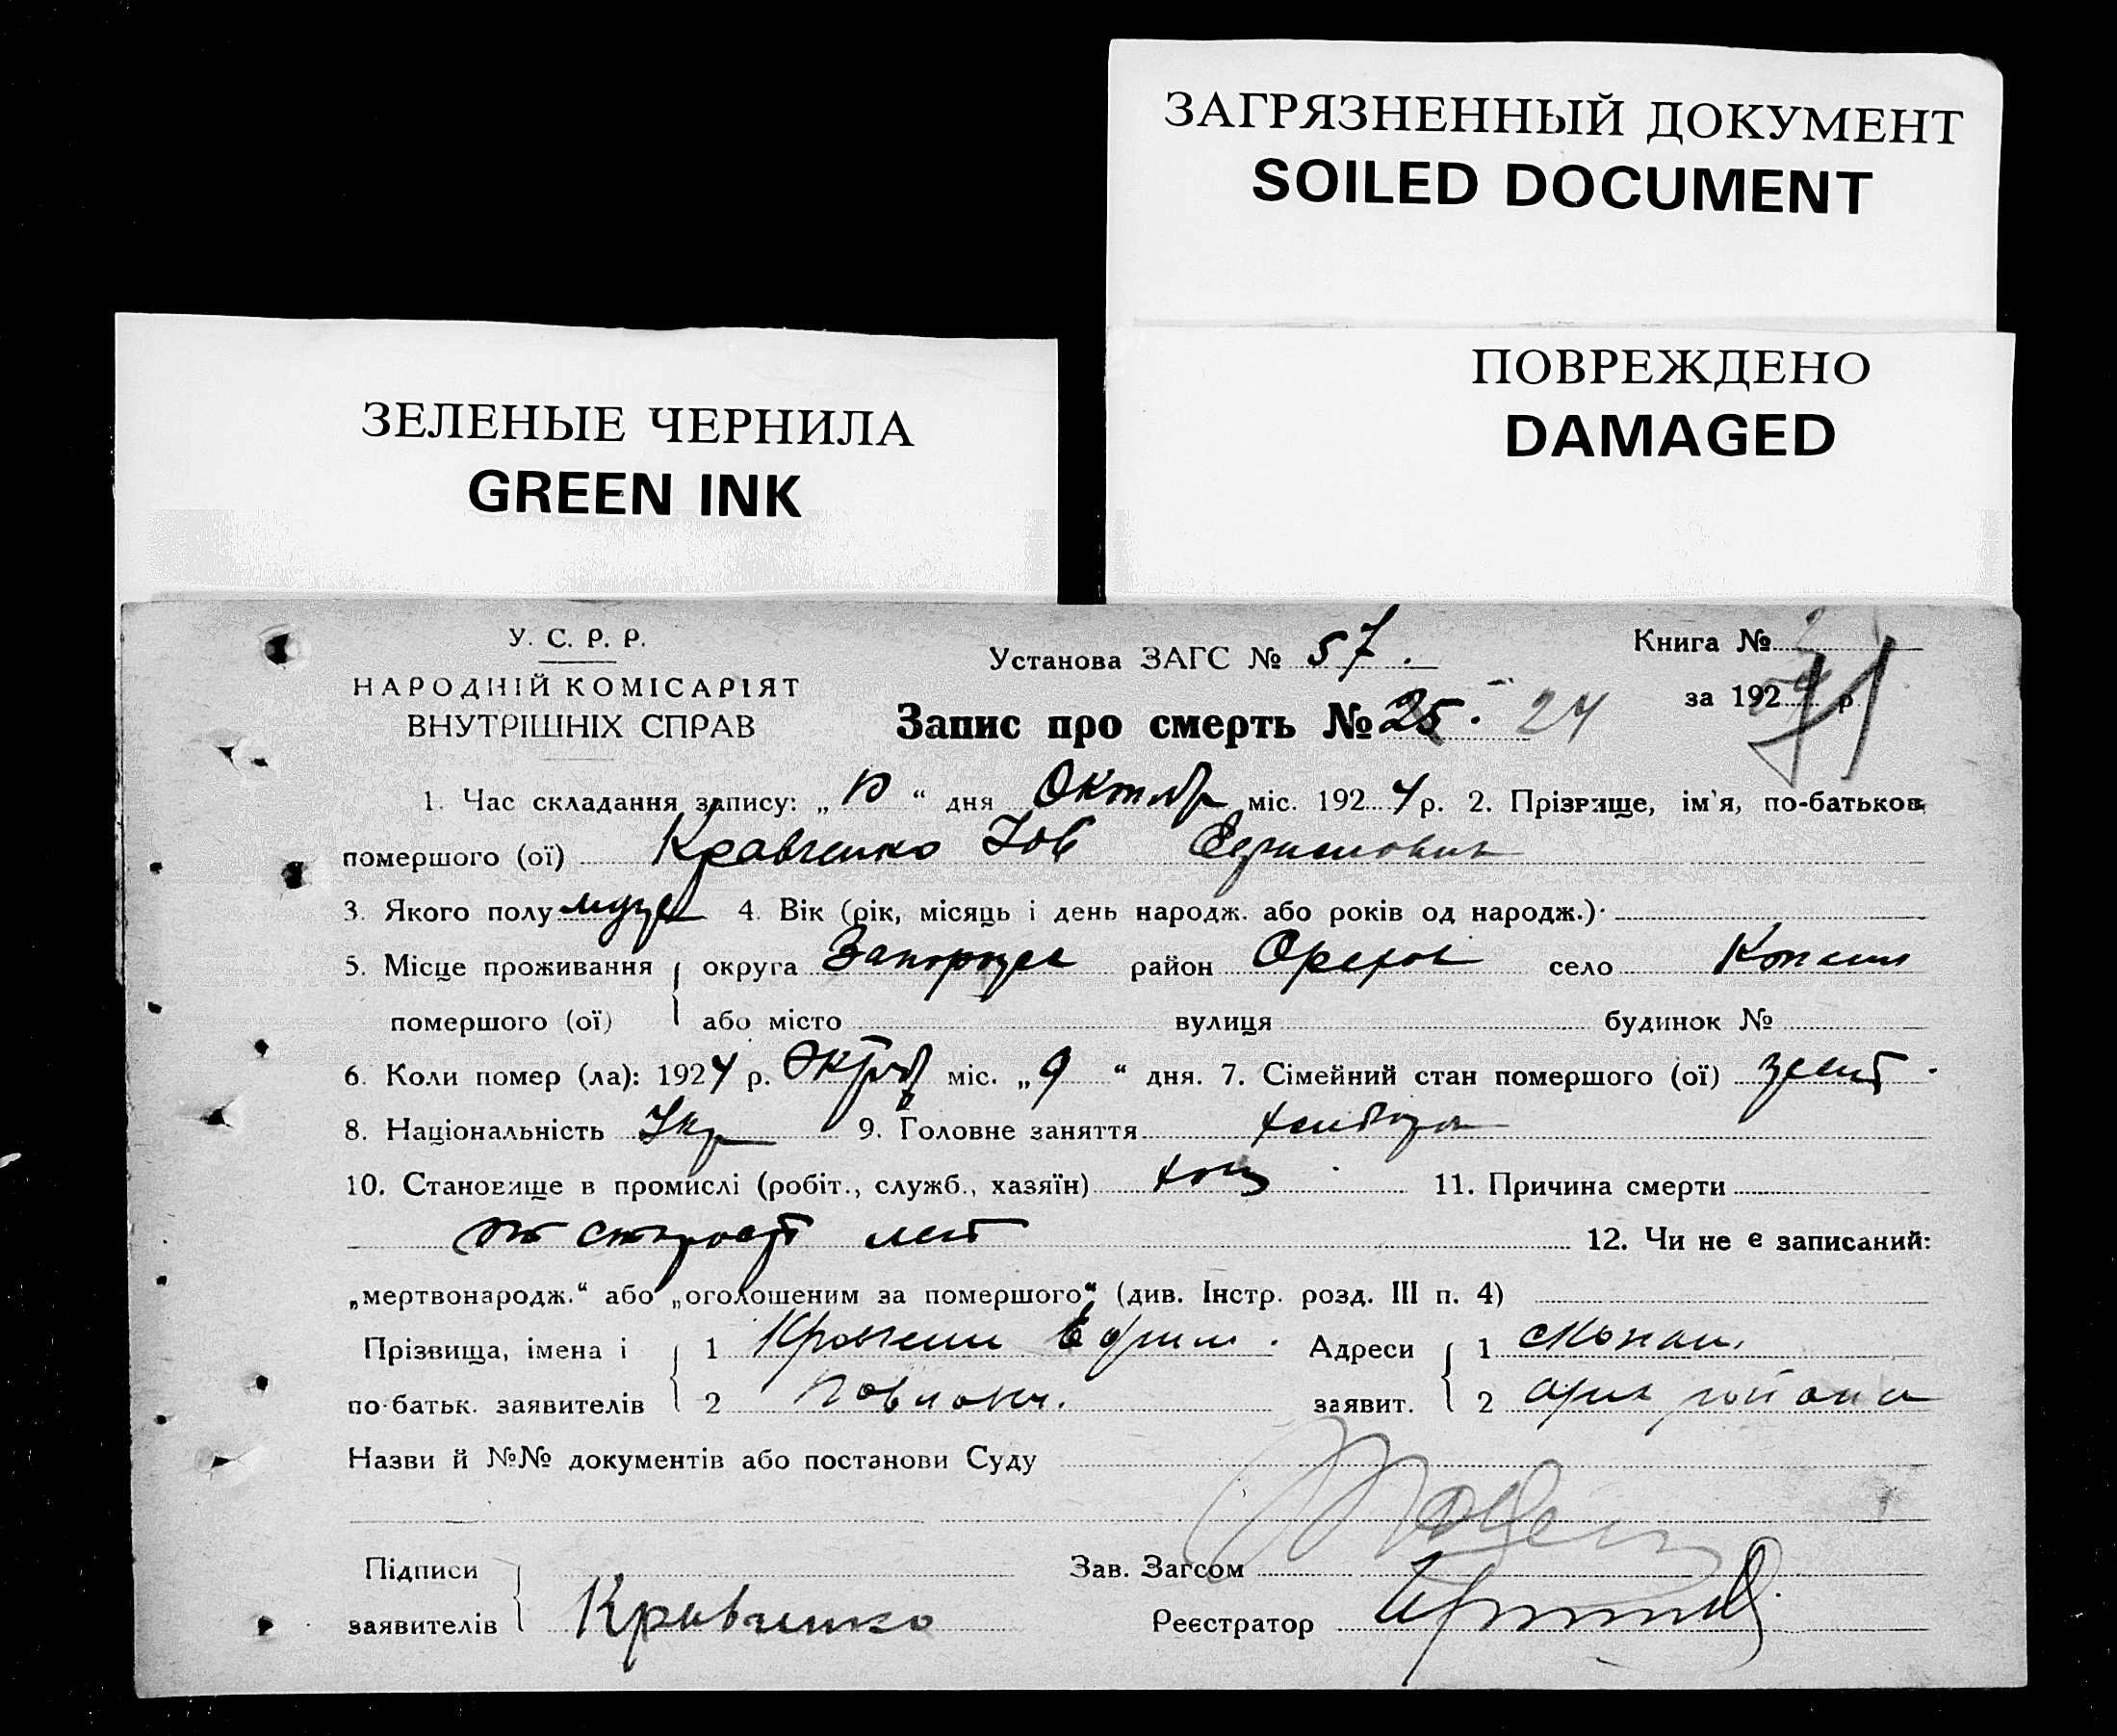 ЗАГРЯЗНЕННЫЙ ДОКУМЕНТ
SOILED DOCUMENT
ПОВРЕЖДЕНО
DAMAGED
ЗЕЛЕНЫЕ ЧЕРНИЛА
GREEN INK
У. С. Р. Р.
НАРОДНІЙ КОМІСАРІЯТ
ВНУТРІШНІХ СПРАВ
Установа ЗАГС № 57.
Книга №
за 192 р.
71
Запис про смерть № 25. 24
1. Час складання запису: „10“ дня Октябр міс. 1924 р. 2. Прізвище, ім'я, по-батькові
помершого (ої) Кравченко Іов
3. Якого полу муж 4. Вік (рік, місяць і день народж. або років од народж.)
5. Місце проживання округа Запорож район Орехов село Копани
помершого (ої) або місто вулиця будинок №
6. Коли помер (ла): 1924 р. Октяб міс. „9“ дня. 7. Сімейний стан помершого (ої) женат
8. Національність Укр 9. Головне заняття
10. Становище в промислі (робіт., служб., хазяїн) хоз 11. Причина смерти
от старости лет 12. Чи не є записаний:
„мертвонародж.“ або „оголошеним за помершого“ (див. Інстр. розд. III п. 4)
Прізвища, імена і 1 Кравченко Ефрим Адреси 1
по-батьк. заявителів 2 заявит. 2 района
Назви й №№ документів або постанови Суду
Підписи Зав. Загсом
заявителів Кравченко Реєстратор